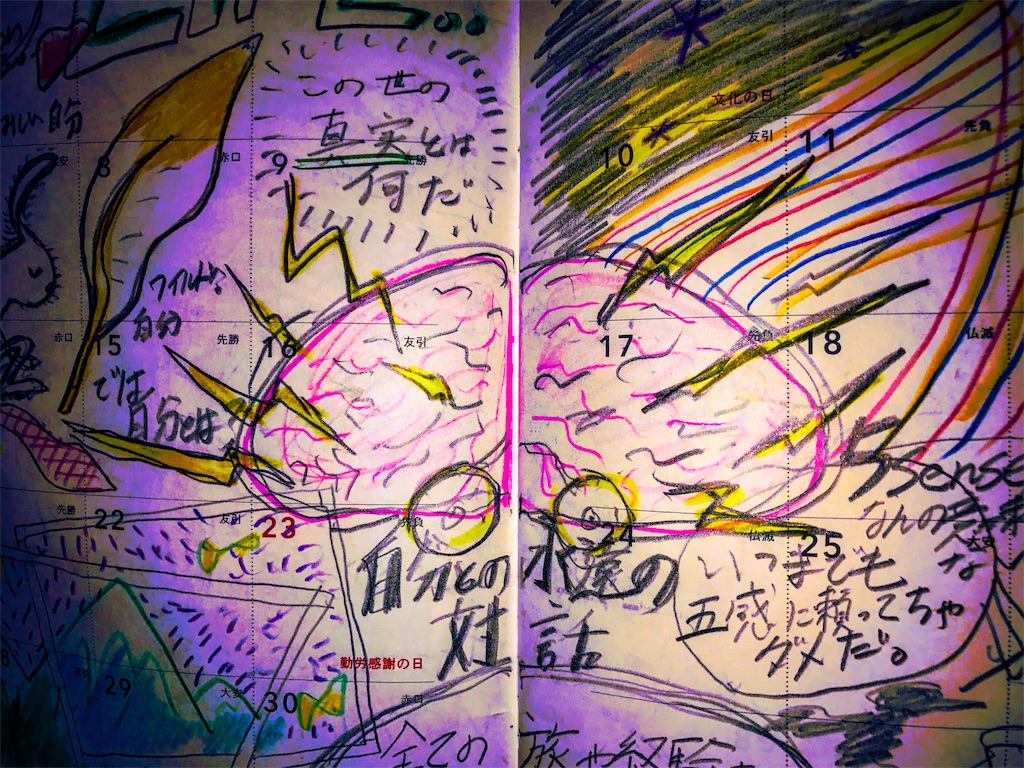 この世の
真実とは
何だ
自分
ワイルド?
自分
では
自分とは
5 sense
なんの意味
な
自分との 永遠の
会話
いつまでも
五感に頼ってちゃ
ダメだ。
全ての 旅や経験
文化の日
友引
先負
10
11
大安
8
赤口
9
先勝
赤口
15
先勝
16
友引
17
先負
18
仏滅
先勝
22
友引
23
先負
24
仏滅
25
大安
勤労感謝の日
29
大安
30
赤口